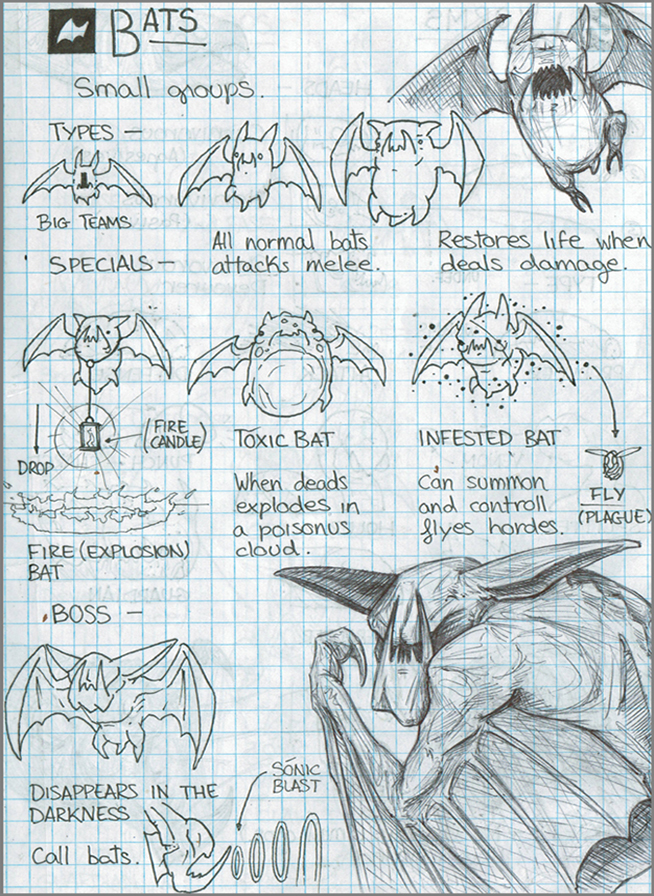 BATS
Small groups.
TYPES —
BIG TEAMS
All normal bats
attacks melee.
Restores life when
deals damage.
SPECIALS —
DROP
(FIRE
CANDLE)
FIRE (EXPLOSION)
BAT
TÓXIC BAT
When deads
explodes in
a poisonus
cloud.
INFESTED BAT
Can summon
and controll
flyes hordes.
FLY
(PLAGUE)
BOSS —
DISAPPEARS IN THE
DARKNESS
Call bats.
SÓNIC
BLAST